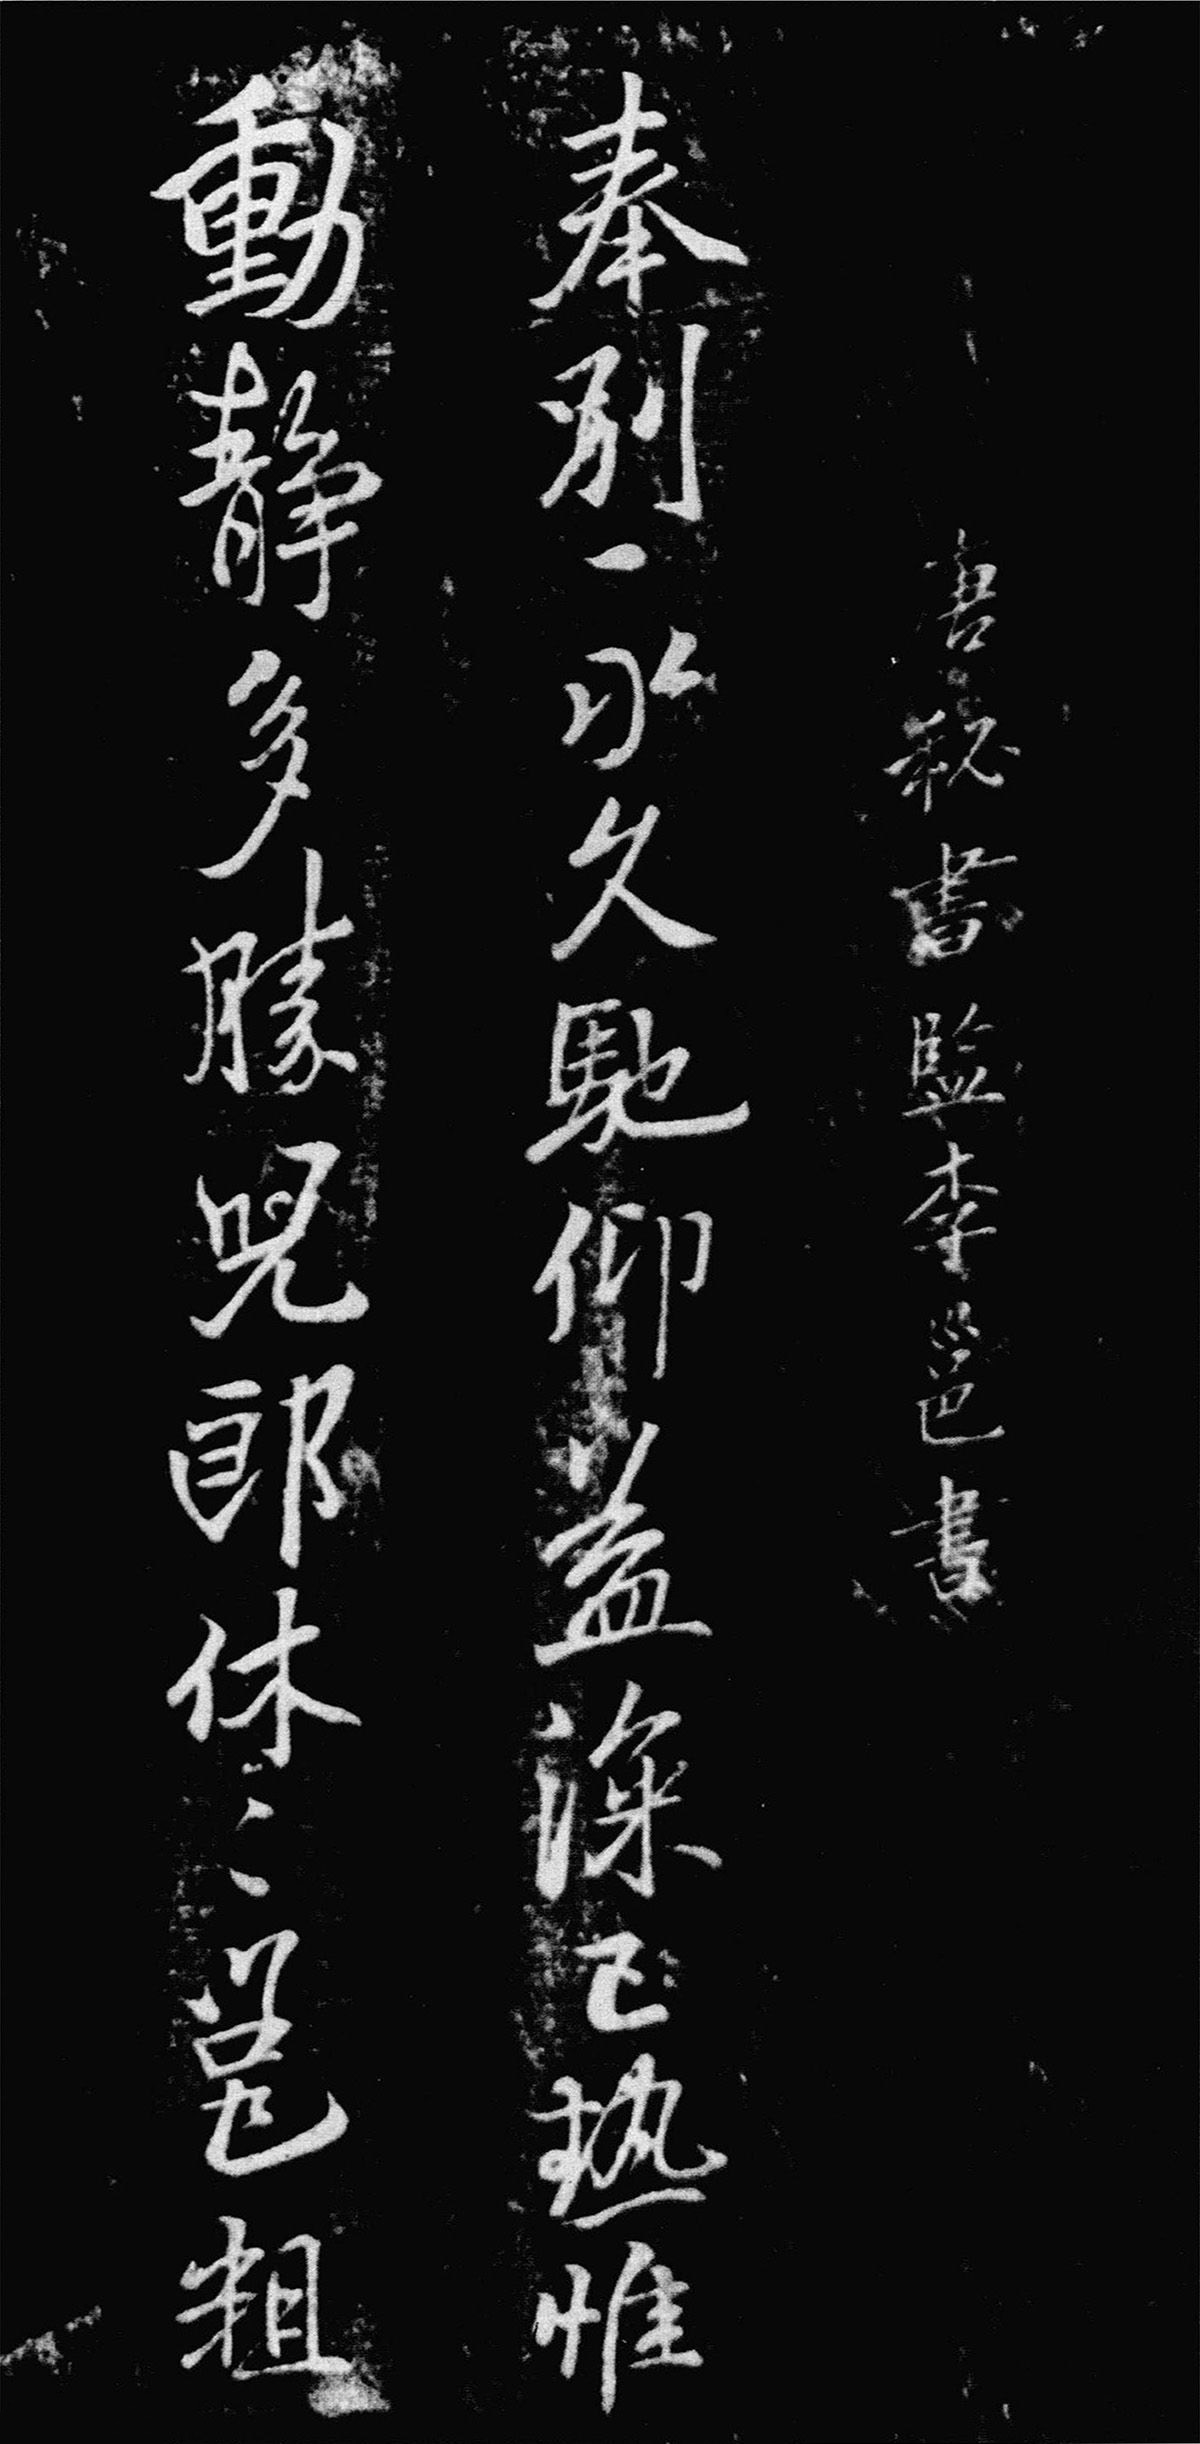 唐秘書監李邕書
奉別一日久馳仰益深已热惟
動靜多勝兒郎休〻邕粗